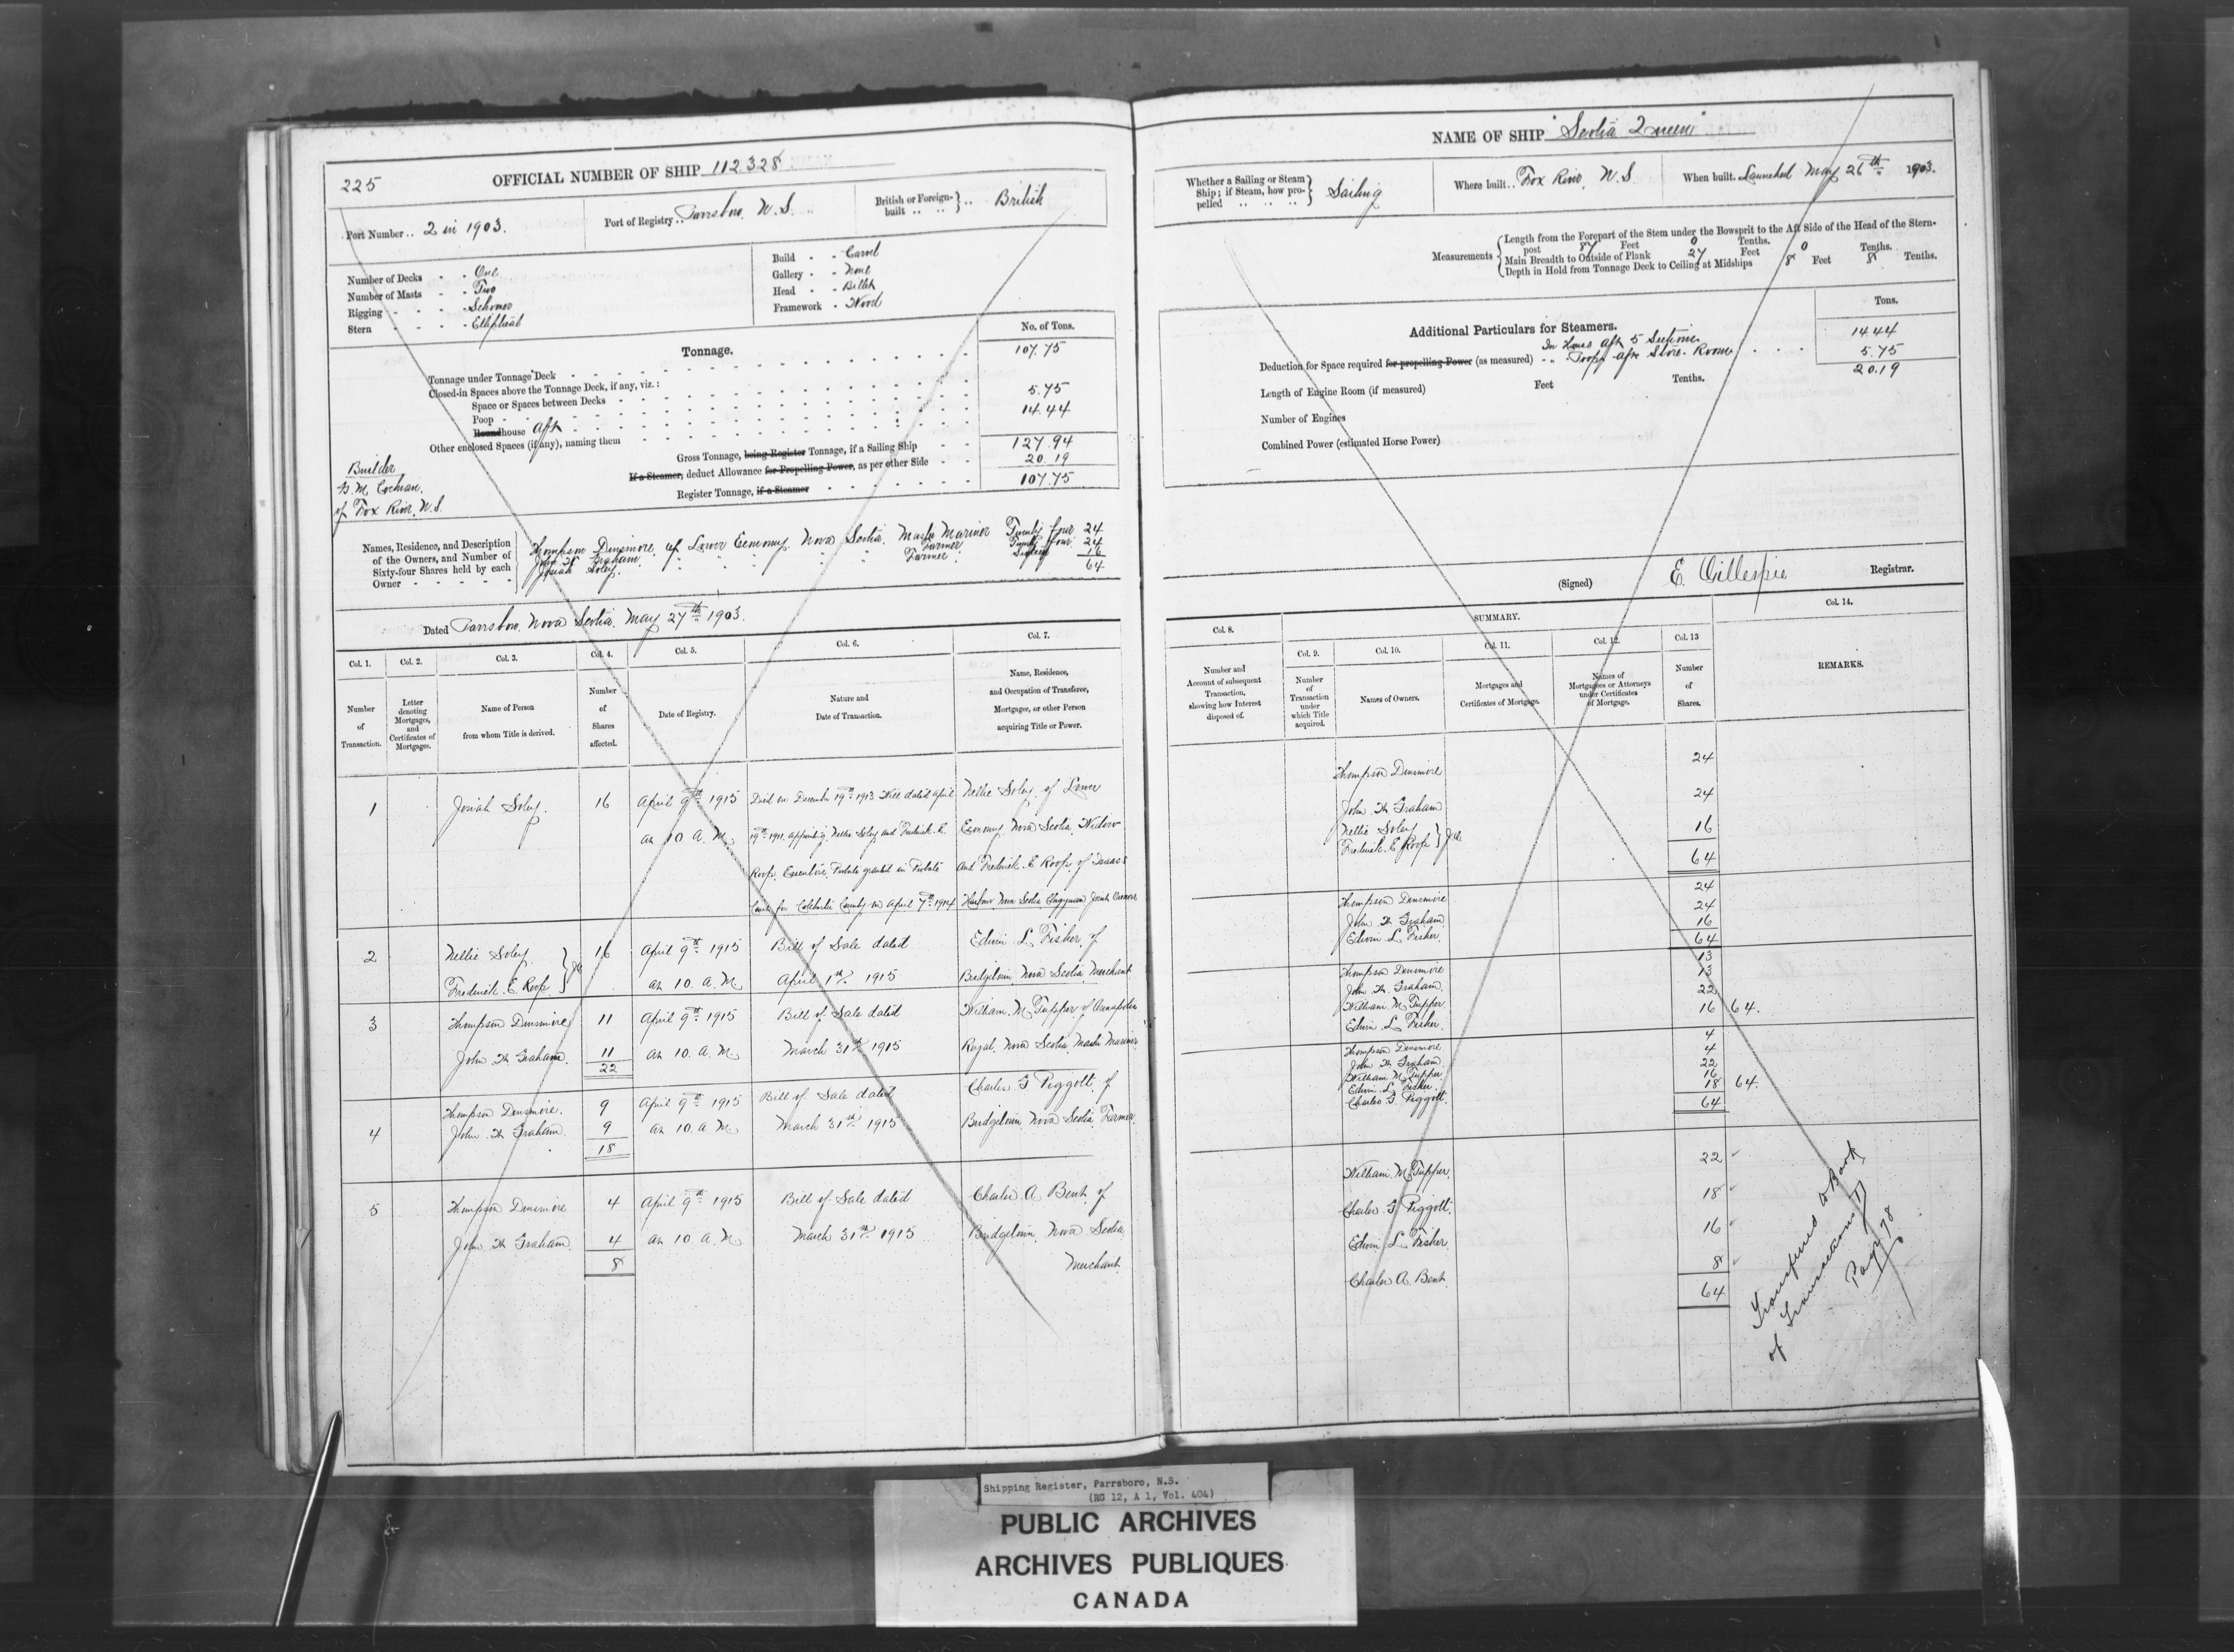 225
OFFICIAL NUMBER OF SHIP 112.328
Port Number .. 2 in 1903.
Port of Registry .. Parrsboro, N.S.
British or Foreign-built .. British
Number of Decks - - One
Number of Masts - - Two
Rigging - - - Schooner
Stern - - - - Elliptical
Build - - Carvel
Gallery - - None
Head - - Billet
Framework - Wood
Tonnage.
No. of Tons.
Tonnage under Tonnage Deck 107.75
Closed-in Spaces above the Tonnage Deck, if any, viz.:
Space or Spaces between Decks
Poop 5.75
Roundhouse Aft 14.44
Other enclosed Spaces (if any), naming them
Gross Tonnage, being Register Tonnage, if a Sailing Ship 127.94
If a Steamer, deduct Allowance for Propelling Power, as per other Side 20.19
Register Tonnage, if a Steamer 107.75
Builder
Cochran.
of Fox River, N.S.
Names, Residence, and Description
of the Owners, and Number of
Sixty-four Shares held by each
Owner
Thompson Dinsmore, of Lower Economy, Nova Scotia, Master Mariner Twenty four 24
John W. Graham, " " " " Farmer Twenty four 24
Josiah Soley, " " " " Farmer Sixteen 16
64
Dated Parrsboro, Nova Scotia, May 27th 1903.
Col. 1. Col. 2. Col. 3. Col. 4. Col. 5. Col. 6. Col. 7.
Number of Transaction.
Letter denoting Mortgages, and Certificates of Mortgages.
Name of Person from whom Title is derived.
Number of Shares affected.
Date of Registry.
Nature and Date of Transaction.
Name, Residence, and Occupation of Transferee, Mortgagee, or other Person acquiring Title or Power.
1 Josiah Soley. 16 April 9th 1915 Died on December 19th 1913 Will dated April Nellie Soley, of Lower
at 10 A.M. 19th 1911, appointing Nellie Soley and Frederick E. Economy, Nova Scotia, Widow
Roop, Executors, Probate granted in Probate and Frederick E Roop, of Isaacs
Court for Colchester County on April 7th 1914 Harbour, Nova Scotia Clergyman Joint Owners
2 Nellie Soley 16 April 9th 1915 Bill of Sale dated Edwin L. Fisher, of
Frederick E Roop } J.O. at 10. A.M. April 1st 1915 Bridgetown, Nova Scotia, Merchant
3 Thompson Dinsmore 11 April 9th 1915 Bill of Sale dated William M. Tupper of Annapolis
John W Graham. 11 at 10. A.M. March 31st 1915 Royal, Nova Scotia, Master Mariner
22
4 Thompson Dinsmore. 9 April 9th 1915 Bill of Sale dated Charles F Piggott, of
John W Graham. 9 at 10. A M. March 31st 1915 Bridgetown, Nova Scotia, Farmer.
18
5 Thompson Dinsmore 4 April 9th 1915 Bill of Sale dated Charles A. Bent, of
John W Graham. 4 at 10 A.M. March 31st 1915 Bridgetown, Nova Scotia,
8 Merchant.
NAME OF SHIP "Scotia Queen"
Whether a Sailing or Steam Ship; if Steam, how propelled Sailing
Where built .. Fox River, N.S.
When built. Launched May 26th 1903.
Measurements
Length from the Forepart of the Stem under the Bowsprit to the Aft Side of the Head of the Stern-
post 87 Feet 0 Tenths.
Main Breadth to Outside of Plank 27 Feet 0 Tenths.
Depth in Hold from Tonnage Deck to Ceiling at Midships 8 Feet 8 Tenths.
Tons.
Additional Particulars for Steamers.
In House Aft 5 Sections 14.44
Deduction for Space required for propelling Power (as measured) " Poop aft Store Room 5.75
20.19
Length of Engine Room (if measured) Feet Tenths.
Number of Engines
Combined Power (estimated Horse Power)
(Signed) E. Gillespie Registrar.
SUMMARY.
Col. 8. Col. 9. Col. 10. Col. 11. Col. 12. Col. 13 Col. 14.
Number and Account of subsequent Transaction, showing how Interest disposed of.
Number of Transaction under which Title acquired.
Names of Owners.
Mortgages and Certificates of Mortgage.
Names of Mortgagees or Attorneys under Certificates of Mortgage.
Number of Shares.
REMARKS.
Thompson Dinsmore 24
John W Graham 24
Nellie Soley
Frederick E Roop } J.O. 16
64
Thompson Dinsmore 24
John W Graham 24
Edwin L. Fisher. 16
64
Thompson Dinsmore 13
John W Graham. 13
William M. Tupper 22
Edwin L. Fisher. 16 64.
Thompson Dinsmore 4
John W Graham 4
William M. Tupper 22
Edwin L. Fisher. 16
Charles F. Piggott. 18 64.
64
William M. Tupper. 22
Charles F Piggott. 18
Edwin L. Fisher. 16
Charles A. Bent. 8
64
Transferred to Book
of Transactions
Page 78
Shipping Register, Parrsboro, N.S.
(RG 12, A 1, Vol. 404)
PUBLIC ARCHIVES
ARCHIVES PUBLIQUES
CANADA